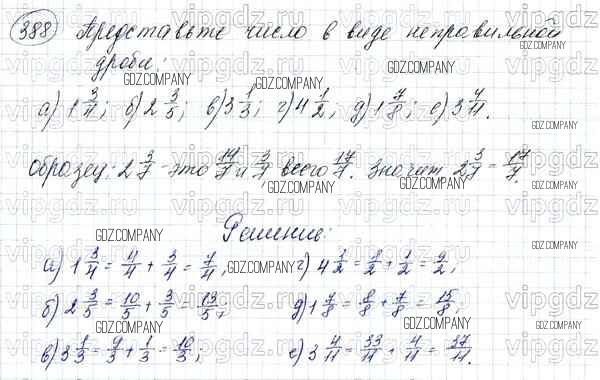 388 Представьте число в виде неправильной
дроби:
а) 1 3/4; б) 2 3/5; в) 3 1/3; г) 4 1/2; д) 1 7/8; е) 3 4/11.
Образец: 2 3/7 - это 14/7 и 3/7, всего 17/7. Значит 2 3/7 = 17/7.
Решение:
а) 1 3/4 = 4/4 + 3/4 = 7/4; г) 4 1/2 = 8/2 + 1/2 = 9/2;
б) 2 3/5 = 10/5 + 3/5 = 13/5; д) 1 7/8 = 8/8 + 7/8 = 15/8;
в) 3 1/3 = 9/3 + 1/3 = 10/3; е) 3 4/11 = 33/11 + 4/11 = 37/11.
GDZ.COMPANY
vipgdz.ru